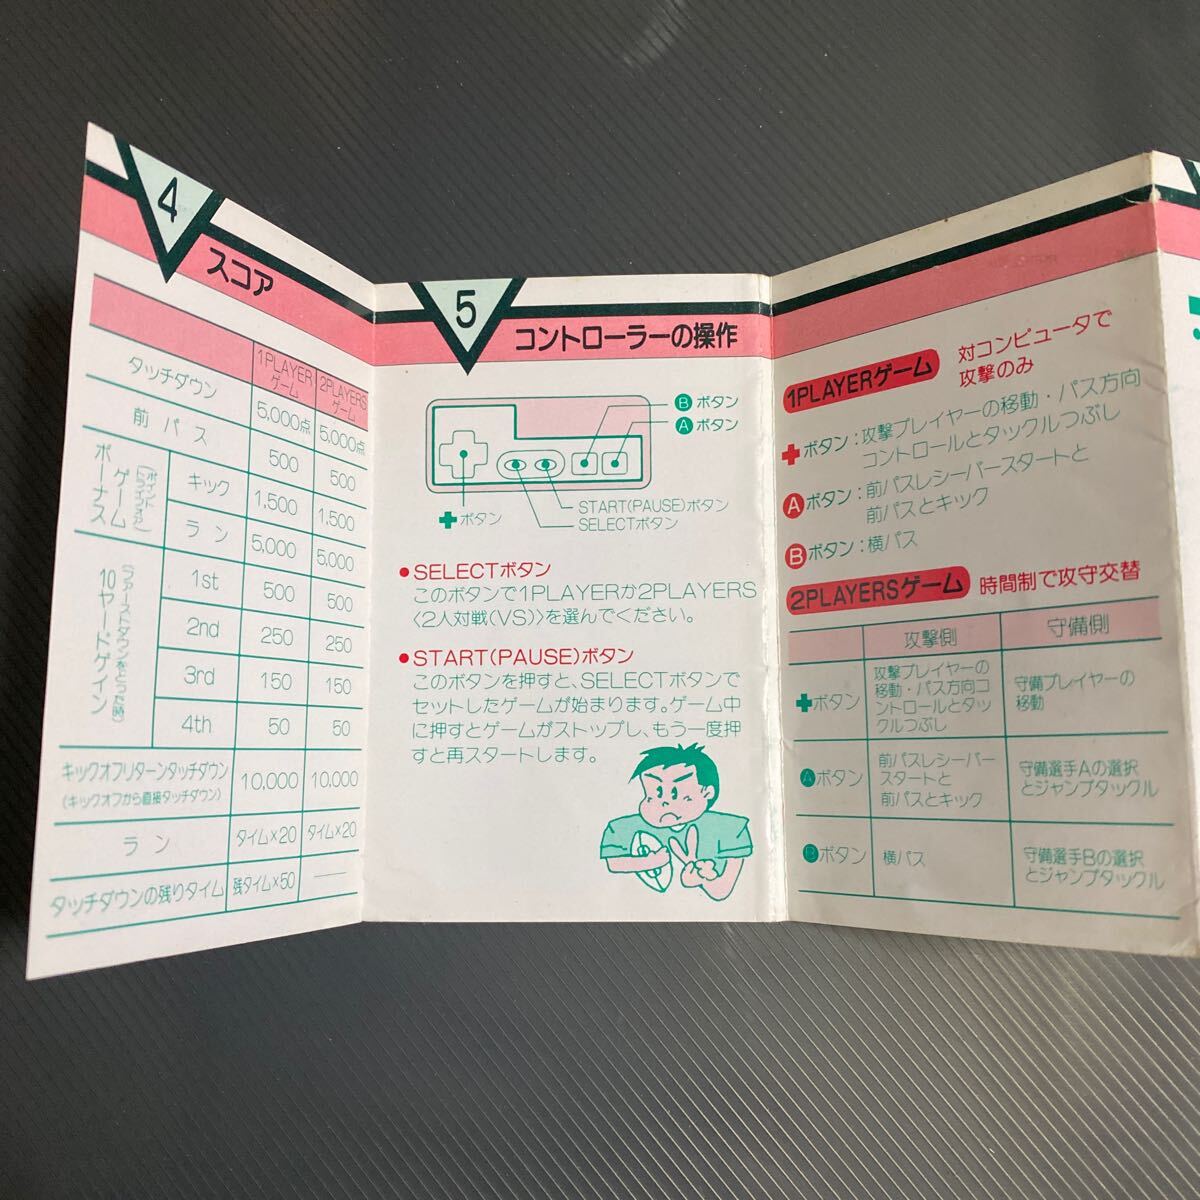 4
スコア
1PLAYER
ゲーム
2PLAYERS
ゲーム
タッチダウン
5,000点
5,000点
前パス
500
500
ボーナス
ゲーム
キック
1,500
1,500
ラン
5,000
5,000
10ヤードゲイン
(ファーストダウンをとった時)
1st
500
500
2nd
250
250
3rd
150
150
4th
50
50
キックオフリターンタッチダウン
(キックオフから直接タッチダウン)
10,000
10,000
ラン
タイム×20
タイム×20
タッチダウンの残りタイム
残タイム×50
5
コントローラーの操作
Bボタン
Aボタン
START(PAUSE)ボタン
SELECTボタン
✚ボタン
●SELECTボタン
このボタンで1PLAYERか2PLAYERS
〈2人対戦(VS)〉を選んでください。
●START(PAUSE)ボタン
このボタンを押すと、SELECTボタンで
セットしたゲームが始まります。ゲーム中
に押すとゲームがストップし、もう一度押
すと再スタートします。
1PLAYERゲーム
対コンピュータで
攻撃のみ
✚ボタン：攻撃プレイヤーの移動・パス方向
コントロールとタックルつぶし
Aボタン：前パスレシーバースタートと
前パスとキック
Bボタン：横パス
2PLAYERSゲーム
時間制で攻守交替
攻撃側
守備側
✚ボタン
攻撃プレイヤーの
移動・パス方向コ
ントロールとタッ
クルつぶし
守備プレイヤーの
移動
Aボタン
前パスレシーバー
スタートと
前パスとキック
守備選手Aの選択
とジャンプタックル
Bボタン
横パス
守備選手Bの選択
とジャンプタックル